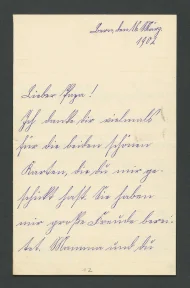 Bern, den 16. März.
1902
Lieber Papa!
Ich danke dir vielmals
für die beiden schönen
Karten, die du mir ge-
schickt hast. Sie haben
mir große Freude berei-
tet. Mamma und du